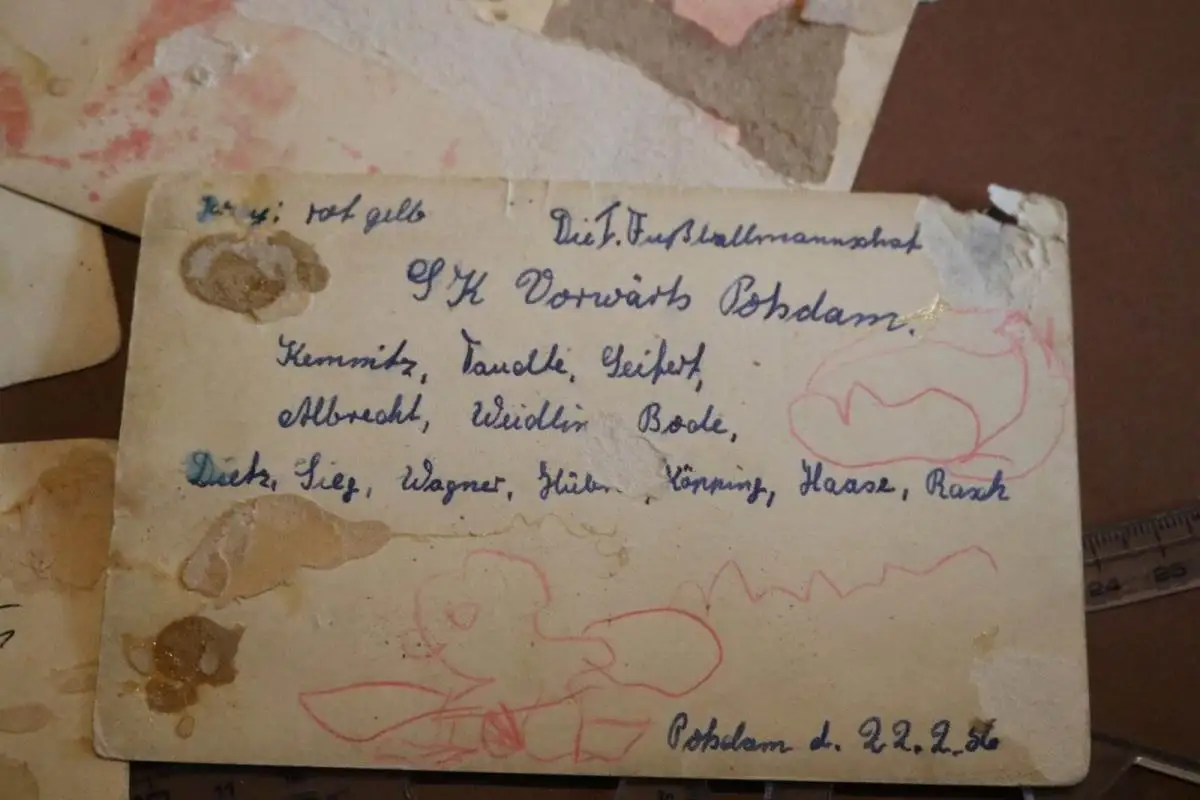 rot gelb
Die I. Fußballmannschaft
SK Vorwärts Potsdam.
Kemnitz, Taudte, Seifert,
Albrecht, Weidlin Bode,
Dietz, Sieg, Wagner, Hübn , Köpping, Haase, Rasch
Potsdam d. 22.2.56
24 25
11